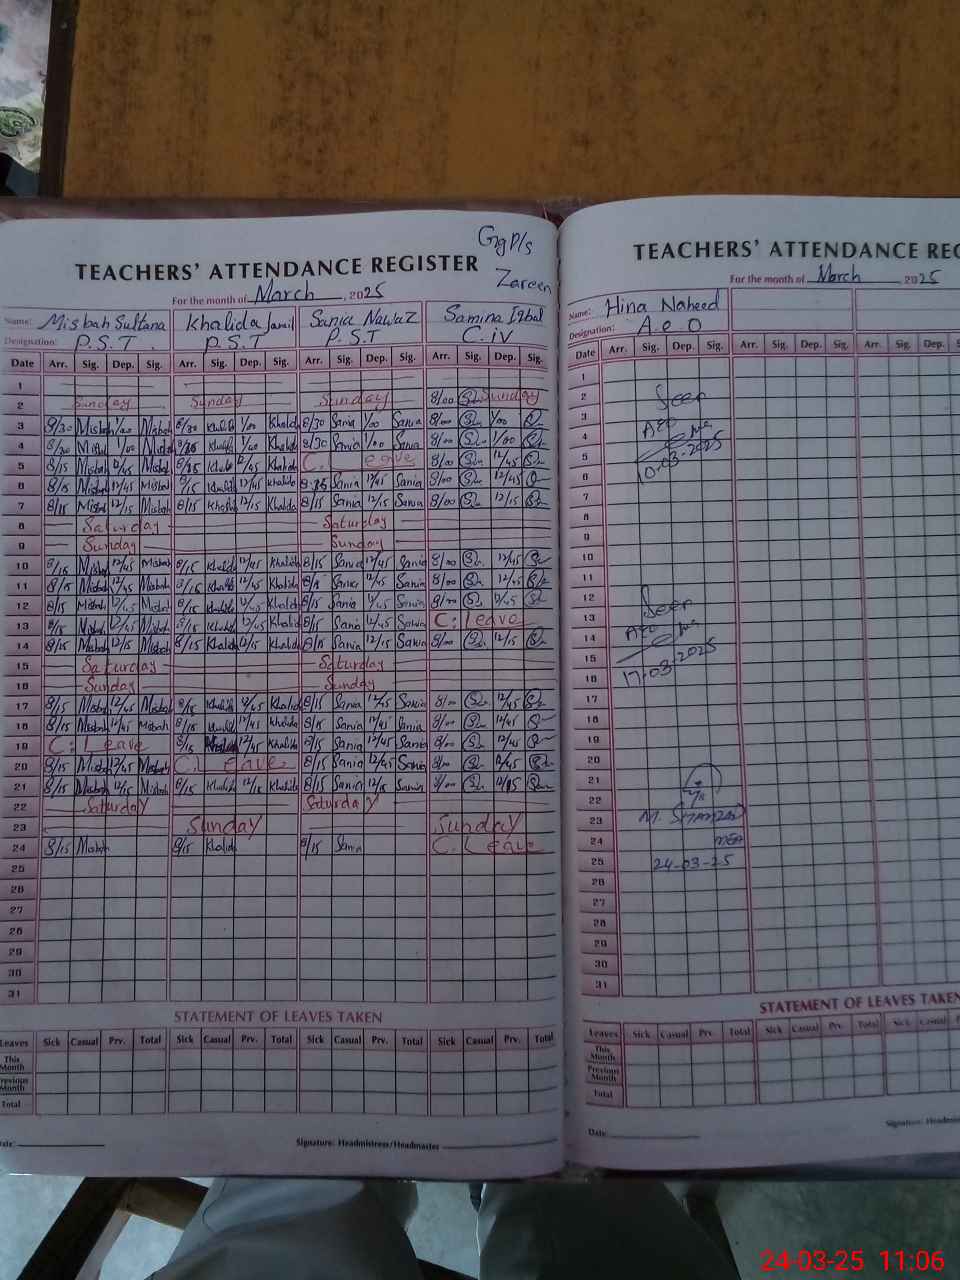 TEACHERS' ATTENDANCE REGISTER
Zareen
For the month of March, 2025
Name: Misbah Sultana Khalida Jamil Sania Nawaz Samina Iqbal
Designation: P.S.T P.S.T P.S.T C.iv
Date Arr. Sig. Dep. Sig. Arr. Sig. Dep. Sig. Arr. Sig. Dep. Sig. Arr. Sig. Dep. Sig.
1
2 Sunday Sunday Sunday 8/00 Sunday
3 8/30 Misbah 1/00 Misbah 8/30 Khalid 1/00 Khalid 8/30 Sania 1/00 Sania 8/00 1/00
4 8/30 1/00 1/00 Khalid 8/30 Sania 1/00 Sania 8/00 1/00
5 8/15 Misbah 12/45 Misbah 12/45 Khalid C. Leave 8/00 12/45
6 8/15 Misbah 12/45 Misbah 8/15 12/45 Khalida Sania 12/45 Sania 8/00 12/45
7 8/15 Misbah 12/15 Misbah 8/15 12/15 Khalida 8/15 Sania 12/15 Sania 8/00 12/15
8 Saturday Saturday
9 Sunday Sunday
10 8/15 Misbah 12/45 Misbah 8/15 Khalid 12/45 Khalid 8/15 Sania 12/45 Sania 8/00 12/45
11 8/15 Misbah 12/45 Misbah 8/15 Khalid 12/45 Khalid 8/15 12/45 Sania 8/00 12/45
12 8/15 Misbah 12/45 Misbah 8/15 Khalid 12/45 Khalid 8/15 Sania 12/45 Sania 8/00 12/45
13 8/15 Misbah 12/45 Misbah 8/15 Khalid 12/45 Khalid 8/15 Sania 12/45 Sania C: Leave
14 8/15 Misbah 12/15 Misbah 8/15 Khalid 12/15 Khalid 8/15 Sania 12/15 Sania 8/00 12/15
15 Saturday Saturday
16 Sunday Sunday
17 8/15 Misbah 12/45 Misbah 8/15 Khalid 12/45 Khalid 8/15 Sania 12/45 Sania 8/00 12/45
18 8/15 Misbah 12/45 Misbah 8/15 12/45 Khalida 8/15 Sania 12/45 Sania 8/00 12/45
19 C: Leave 8/15 12/45 Khalida 8/15 Sania 12/45 Sania 8/00 12/45
20 8/15 Misbah 12/45 Misbah C. Leave 8/15 Sania 12/45 Sania 8/00 12/45
21 8/15 Misbah 12/15 Misbah 8/15 Khalid 12/15 Khalida 8/15 Sania 12/15 Sania 8/00 12/15
22 Saturday Saturday
23 Sunday Sunday
24 8/15 Misbah 8/15 Khalid 8/15 Sania C. Leave
25
26
27
28
29
30
31
STATEMENT OF LEAVES TAKEN
Leaves Sick Casual Prv. Total Sick Casual Prv. Total Sick Casual Prv. Total Sick Casual Prv. Total
This Month
Previous Month
Total
Date: Signature: Headmistress/Headmaster
TEACHERS' ATTENDANCE REG
For the month of March, 2025
Name: Hina Naheed
Designation: A.E.O
Date Arr. Sig. Dep. Sig. Arr. Sig. Dep. Sig. Arr. Sig. Dep. S
1
2 Seen
3
4 AEO
5
6 10-03-2025
7
8
9
10
11
12 Seen
13
14 AEO
15
16 17-03-2025
17
18
19
20
21
22
23
24
25 24-03-25
26
27
28
29
30
31
STATEMENT OF LEAVES TAKEN
Leaves Sick Casual Prv. Total Sick Casual Prv. Total Sick Casual
This Month
Previous Month
Total
Date: Signature:
24-03-25 11:06